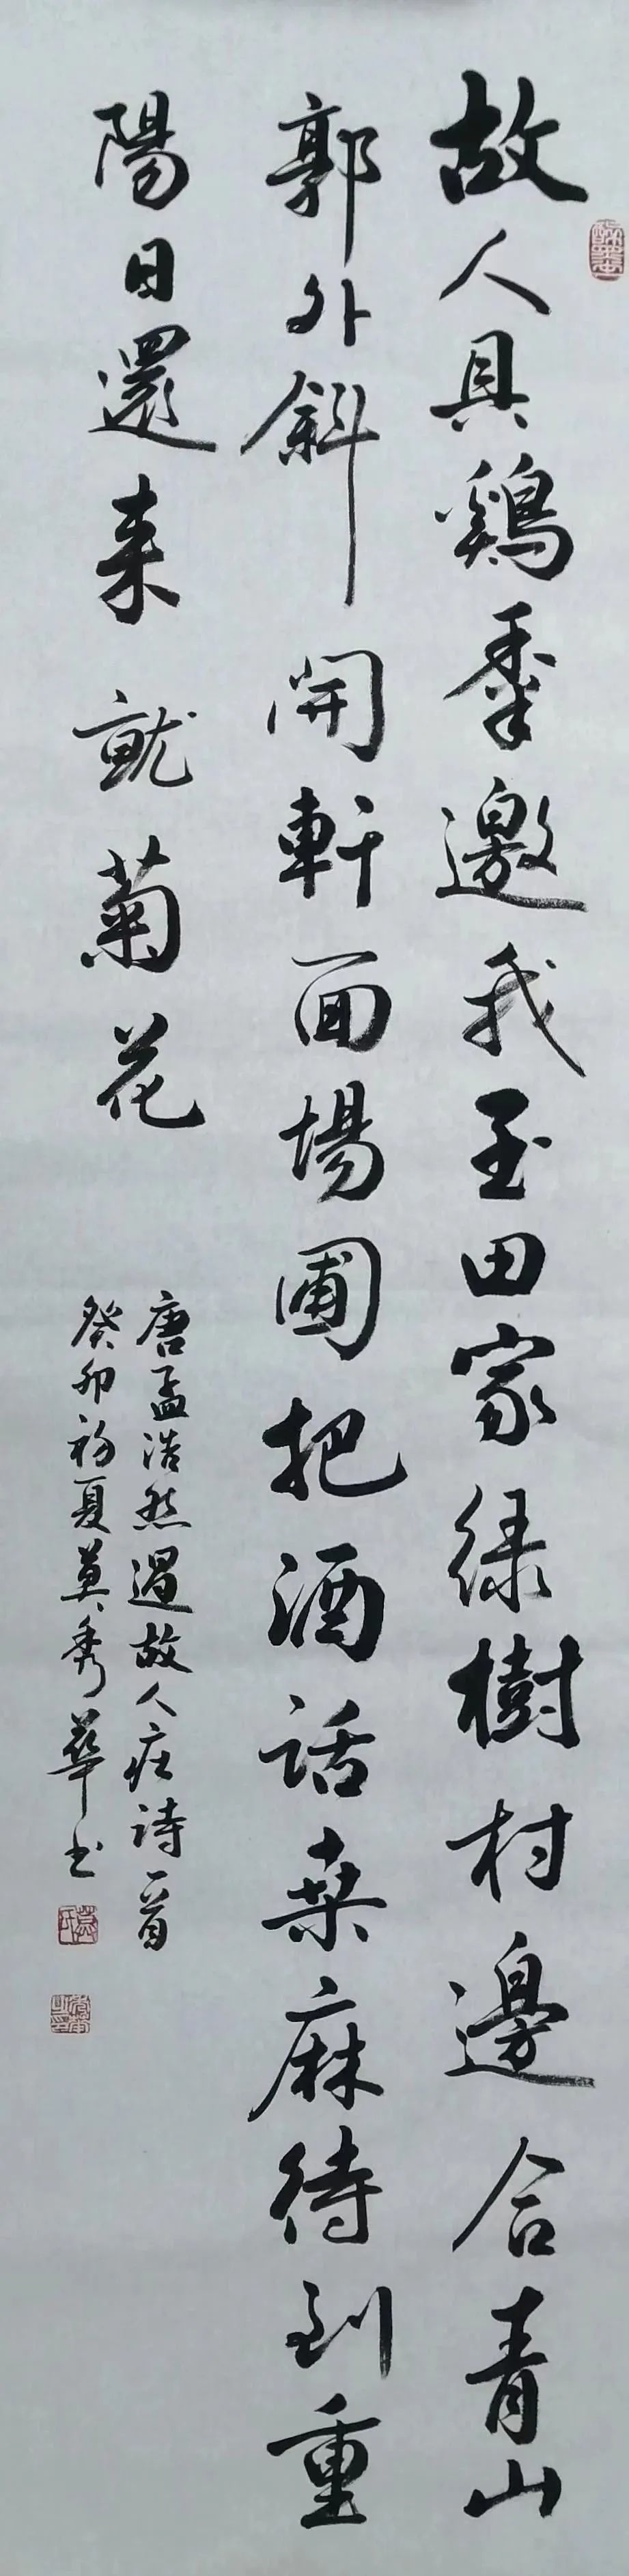 故人具鷄黍邀我至田家绿樹村邊合青山
郭外斜開軒面場圃把酒話桒麻待到重
陽日還来就菊花
唐孟浩然過故人庄詩一首
癸卯初夏莫秀華书